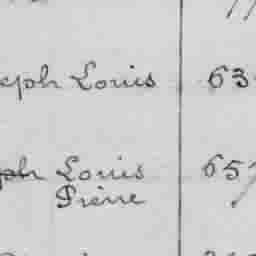 eph Louis 63
ph Louis 657
Pierre